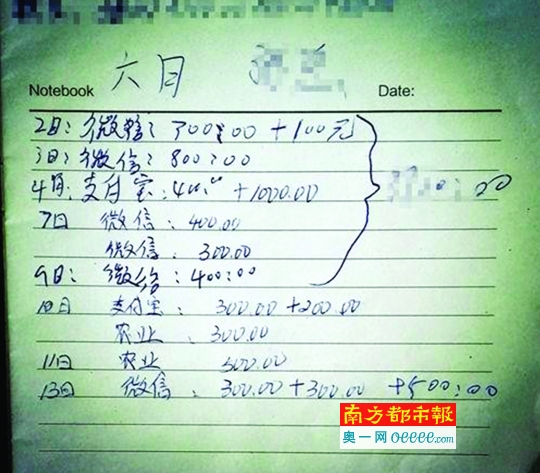 六月
Notebook
Date:
2日: 微信: 300:00 +100元
3日: 微信: 800:00
4日: 支付宝: +1000.00
:00
7日 微信: 400.00
微信: 300.00
9日: 微信: 400:00
10日 支付宝: 300.00 +200.00
农业 300.00
11日 农业 300.00
13日 微信: 300.00 + 300.00 +500:00
南方都市報
奥一网 oeeee.com